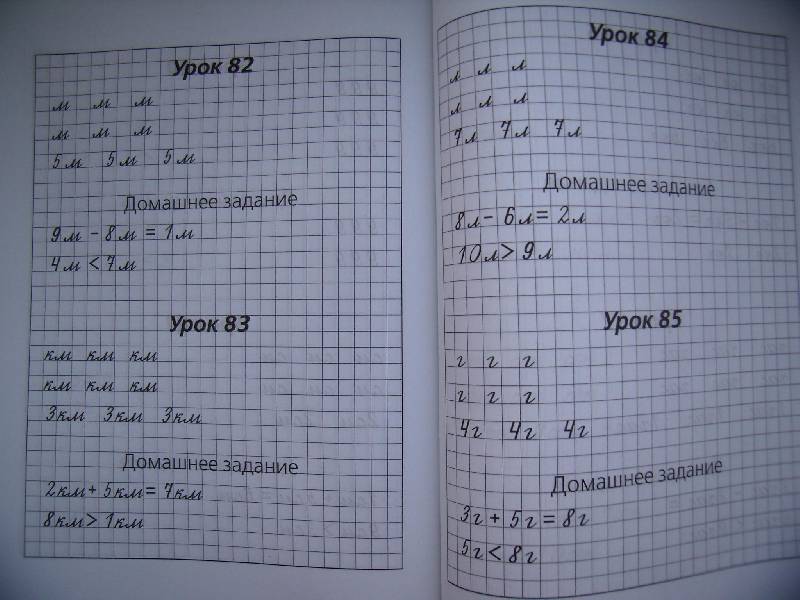 Урок 82
м м м
м м м
5м 5м 5м
Домашнее задание
9м - 8м = 1м
4м < 7м
Урок 83
км км км
км км км
3км 3км 3км
Домашнее задание
2км + 5км = 7км
8км > 1км
Урок 84
л л л
л л л
7л 7л 7л
Домашнее задание
8л - 6л = 2л
10л > 9л
Урок 85
г г г
г г г
4г 4г 4г
Домашнее задание
3г + 5г = 8г
5г < 8г